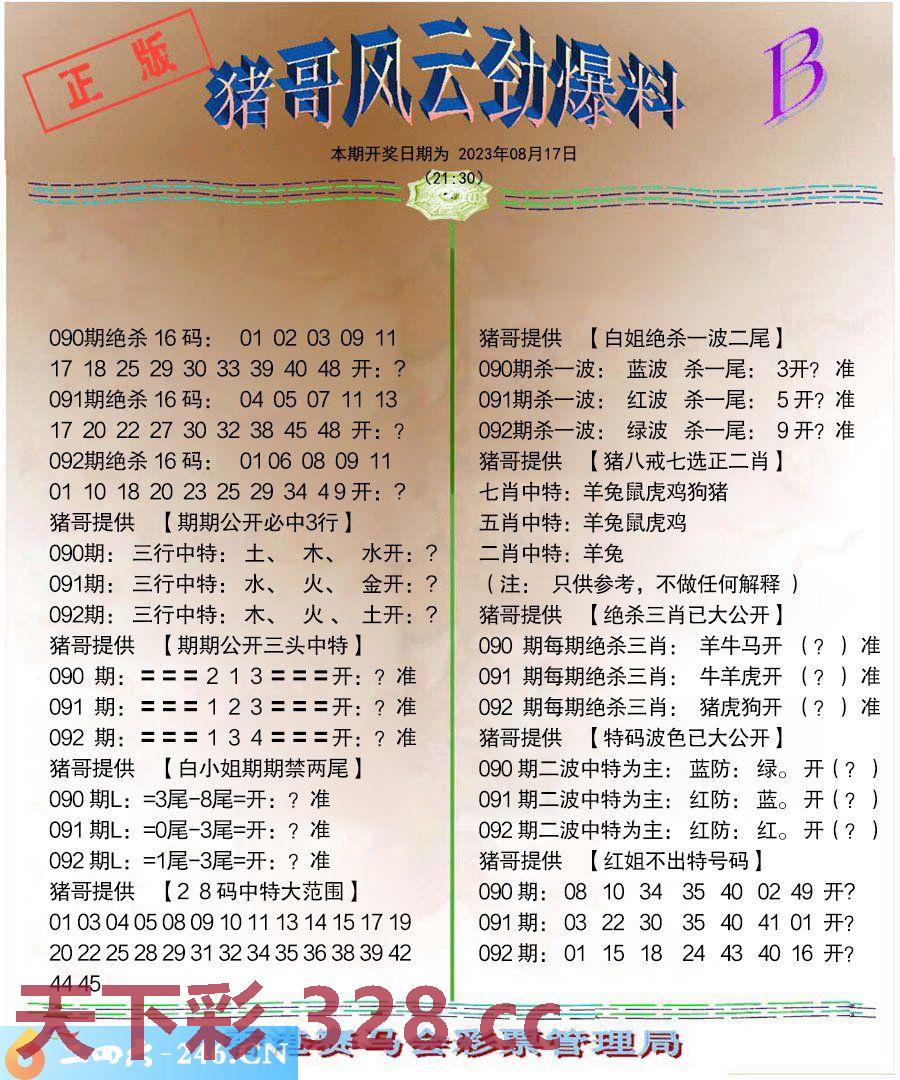 正版
猪哥风云劲爆料
B
本期开奖日期为 2023年08月17日
（21:30）
090期绝杀 16 码： 01 02 03 09 11
17 18 25 29 30 33 39 40 48 开：?
091期绝杀 16 码： 04 05 07 11 13
17 20 22 27 30 32 38 45 48 开：?
092期绝杀 16 码： 01 06 08 09 11
01 10 18 20 23 25 29 34 4 9 开：?
猪哥提供 【期期公开必中3行】
090期： 三行中特： 土、 木、 水开：?
091期： 三行中特： 水、 火、 金开：?
092期： 三行中特： 木、 火 、 土开：?
猪哥提供 【期期公开三头中特】
090 期：〓〓〓 2 1 3 〓〓〓开：? 准
091 期：〓〓〓 1 2 3 〓〓〓开：? 准
092 期：〓〓〓 1 3 4 〓〓〓开：? 准
猪哥提供 【白小姐期期禁两尾】
090 期L：=3尾-8尾=开：? 准
091 期L：=0尾-3尾=开：? 准
092 期L：=1尾-3尾=开：? 准
猪哥提供 【2 8 码中特大范围】
01 03 04 05 08 09 10 11 13 14 15 17 19
20 22 25 28 29 31 32 34 35 36 38 39 42
44 45
猪哥提供 【白姐绝杀一波二尾】
090期杀一波： 蓝波 杀一尾： 3开? 准
091期杀一波： 红波 杀一尾： 5 开? 准
092期杀一波： 绿波 杀一尾： 9 开? 准
猪哥提供 【猪八戒七选正二肖】
七肖中特：羊兔鼠虎鸡狗猪
五肖中特：羊兔鼠虎鸡
二肖中特：羊兔
（注： 只供参考，不做任何解释 ）
猪哥提供 【绝杀三肖已大公开】
090 期每期绝杀三肖： 羊牛马开 （? ）准
091 期每期绝杀三肖： 牛羊虎开 （? ）准
092 期每期绝杀三肖： 猪虎狗开 （? ）准
猪哥提供 【特码波色已大公开】
090 期二波中特为主： 蓝防： 绿。 开（? ）
091 期二波中特为主： 红防： 蓝。 开（? ）
092 期二波中特为主： 红防： 红。 开（? ）
猪哥提供 【红姐不出特号码】
090 期： 08 10 34 35 40 02 49 开?
091 期： 03 22 30 35 40 41 01 开?
092 期： 01 15 18 24 43 40 16 开?
天下彩 328.cc
-246.CN
赛马会彩票管理局